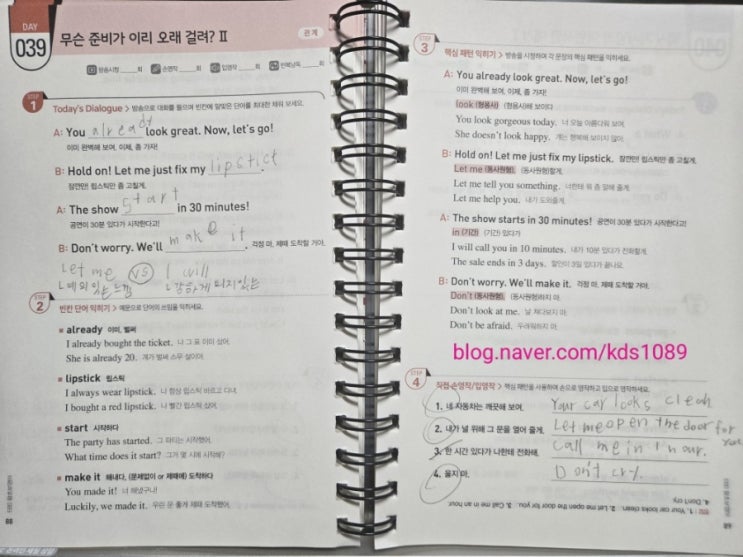 DAY
039
무슨 준비가 이리 오래 걸려? II
관계
방송시청 ____회
손영작 ____회
입영작 ____회
반복낭독 ____회
STEP 1
Today's Dialogue > 방송으로 대화를 들으며 빈칸에 알맞은 단어를 최대한 채워 보세요.
A: You already look great. Now, let's go!
이미 완벽해 보여, 이제, 좀 가자!
B: Hold on! Let me just fix my lipstict.
잠깐만! 립스틱만 좀 고칠게.
A: The show start in 30 minutes!
공연이 30분 있다가 시작한다고!
B: Don't worry. We'll make it. 걱정 마. 제때 도착할 거야.
Let me vs I will
STEP 2
빈칸 단어 익히기 > 예문으로 단어의 쓰임을 익히세요.
already 이미, 벌써
I already bought the ticket. 나 그 표 이미 샀어.
She is already 20. 걔가 벌써 스무 살이야.
lipstick 립스틱
I always wear lipstick. 나 항상 립스틱 바르고 다녀.
I bought a red lipstick. 나 빨간 립스틱 샀어.
start 시작하다
The party has started. 그 파티는 시작했어.
What time does it start? 그거 몇 시에 시작해?
make it 해내다, (문제없이 or 제때에) 도착하다
You made it! 너 해냈구나!
Luckily, we made it. 우린 운 좋게 제때 도착했어.
88
STEP 3
핵심 패턴 익히기 > 방송을 시청하며 각 문장의 핵심 패턴을 익히세요.
A: You already look great. Now, let's go!
이미 완벽해 보여, 이제, 좀 가자!
look (형용사) (형용사)해 보이다
You look gorgeous today. 너 오늘 아름다워 보여.
She doesn't look happy. 걔는 행복해 보이지 않아.
B: Hold on! Let me just fix my lipstick. 잠깐만! 립스틱만 좀 고칠게.
Let me (동사원형) (동사원형)할게.
Let me tell you something. 너한테 뭐 좀 말해 줄게.
Let me help you. 내가 도와줄게.
A: The show starts in 30 minutes! 공연이 30분 있다가 시작한다고!
in (기간) (기간) 있다가
I will call you in 10 minutes. 내가 10분 있다가 전화할게.
The sale ends in 3 days. 할인이 3일 있다가 끝나요.
B: Don't worry. We'll make it. 걱정 마. 제때 도착할 거야.
Don't (동사원형) (동사원형)하지 마.
Don't look at me. 날 쳐다보지 마.
Don't be afraid. 두려워하지 마.
blog.naver.com/kds1089
STEP 4
직접 손영작/입영작 > 핵심 패턴을 사용하여 손으로 영작하고 입으로 영작하세요.
1. 네 자동차는 깨끗해 보여. Your car looks clean
2. 내가 널 위해 그 문을 열어 줄게. Let me open the door for you
3. 한 시간 있다가 나한테 전화해. Call me in 1 hour.
4. 울지 마. Don't cry.
1. Your car looks clean. 2. Let me open the door for you. 3. Call me in an hour.
4. Don't cry.